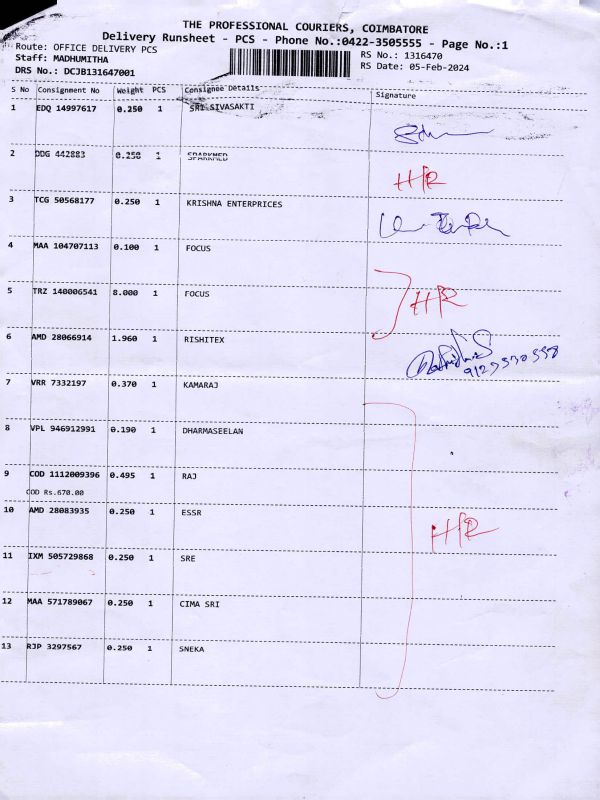 THE PROFESSIONAL COURIERS, COIMBATORE
Delivery Runsheet - PCS - Phone No.:0422-3505555 - Page No.:1
Route: OFFICE DELIVERY PCS RS No.: 1316470
Staff: MADHUMITHA RS Date: 05-Feb-2024
DRS No.: DCJB131647001
S No Consignment No Weight PCS Consignee Details Signature
1 EDQ 14997617 0.250 1 SRI SIVASAKTI
2 DDG 442883 0.250 1 SPARKMED
H/R
3 TCG 50568177 0.250 1 KRISHNA ENTERPRICES
4 MAA 104707113 0.100 1 FOCUS
5 TRZ 140006541 8.000 1 FOCUS
H/R
6 AMD 28066914 1.960 1 RISHITEX
7 VRR 7332197 0.370 1 KAMARAJ
8 VPL 946912991 0.190 1 DHARMASEELAN
9 COD 1112009396 0.495 1 RAJ
COD Rs.670.00
10 AMD 28083935 0.250 1 ESSR
H/R
11 IXM 505729868 0.250 1 SRE
12 MAA 571789067 0.250 1 CIMA SRI
13 RJP 3297567 0.250 1 SNEKA